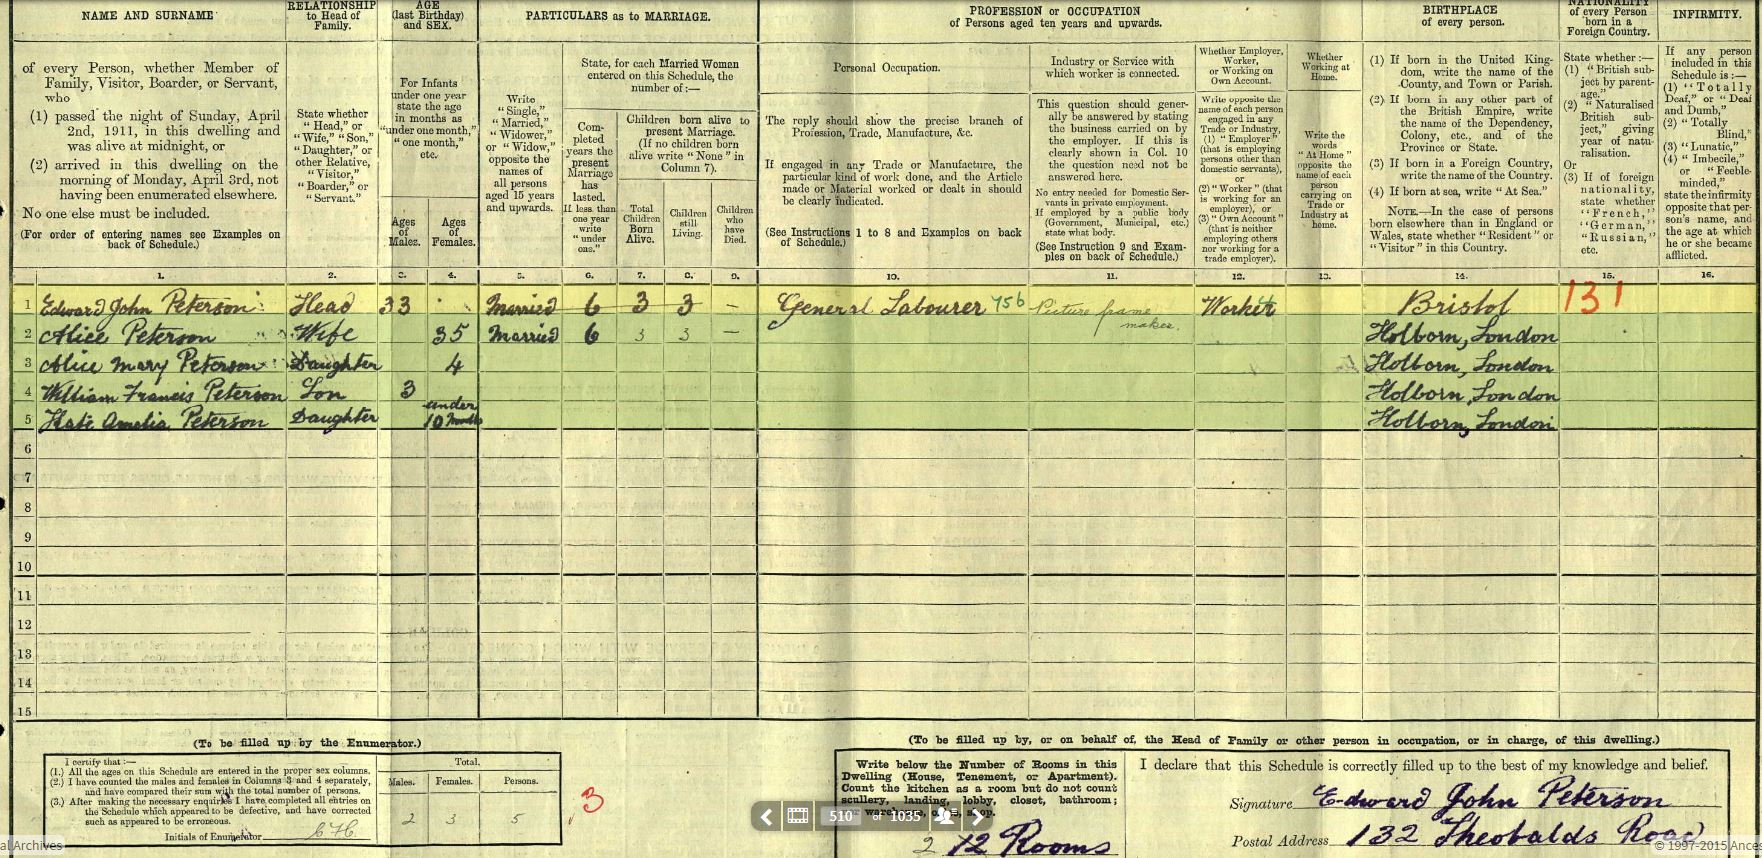 NAME AND SURNAME
RELATIONSHIP
to Head of
Family.
AGE
(last Birthday)
and SEX.
PARTICULARS as to MARRIAGE.
PROFESSION or OCCUPATION
of Persons aged ten years and upwards.
BIRTHPLACE
of every person.
NATIONALITY
of every Person
born in a
Foreign Country.
INFIRMITY.
of every Person, whether Member of
Family, Visitor, Boarder, or Servant,
who
(1) passed the night of Sunday, April
2nd, 1911, in this dwelling and
was alive at midnight, or
(2) arrived in this dwelling on the
morning of Monday, April 3rd, not
having been enumerated elsewhere.
No one else must be included.
(For order of entering names see Examples on
back of Schedule.)
State whether
"Head," or
"Wife," "Son,"
"Daughter," or
other Relative,
"Visitor,"
"Boarder," or
"Servant."
For Infants
under one year
state the age
in months as
"under one month,"
"one month,"
etc.
Ages
of
Males.
Ages
of
Females.
Write
"Single,"
"Married,"
"Widower,"
or "Widow,"
opposite the
names of
all persons
aged 15 years
and upwards.
State, for each Married Woman
entered on this Schedule, the
number of:—
Com-
pleted
years the
present
Marriage
has
lasted.
If less than
one year
write
"under
one."
Children born alive to
present Marriage.
(If no children born
alive write "None" in
Column 7).
Total
Children
Born
Alive.
Children
still
Living.
Children
who
have
Died.
Personal Occupation.
The reply should show the precise branch of
Profession, Trade, Manufacture, &c.
If engaged in any Trade or Manufacture, the
particular kind of work done, and the Article
made or Material worked or dealt in should
be clearly indicated.
(See Instructions 1 to 8 and Examples on back
of Schedule.)
Industry or Service with
which worker is connected.
This question should gener-
ally be answered by stating
the business carried on by
the employer. If this is
clearly shown in Col. 10
the question need not be
answered here.
No entry needed for Domestic Ser-
vants in private employment.
If employed by a public body
(Government, Municipal, etc.)
state what body.
(See Instruction 9 and Exam-
ples on back of Schedule.)
Whether Employer,
Worker,
or Working on
Own Account.
Write opposite the
name of each person
engaged in any
Trade or Industry,
(1) "Employer"
(that is employing
persons other than
domestic servants),
or
(2) "Worker" (that
is working for an
employer), or
(3) "Own Account"
(that is neither
employing others
nor working for a
trade employer).
Whether
Working at
Home.
Write the
words
"At Home"
opposite the
name of each
person
carrying on
Trade or
Industry at
home.
(1) If born in the United King-
dom, write the name of the
County, and Town or Parish.
(2) If born in any other part of
the British Empire, write
the name of the Dependency,
Colony, etc., and of the
Province or State.
(3) If born in a Foreign Country,
write the name of the Country.
(4) If born at sea, write "At Sea."
NOTE.—In the case of persons
born elsewhere than in England or
Wales, state whether "Resident" or
"Visitor" in this Country.
State whether:—
(1) "British sub-
ject by parent-
age."
(2) "Naturalised
British sub-
ject," giving
year of natu-
ralisation.
Or
(3) If of foreign
nationality,
state whether
"French,"
"German,"
"Russian,"
etc.
If any person
included in this
Schedule is:—
(1) "Totally
Deaf," or "Deaf
and Dumb,"
(2) "Totally
Blind,"
(3) "Lunatic,"
(4) "Imbecile,"
or "Feeble-
minded,"
state the infirmity
opposite that per-
son's name, and
the age at which
he or she became
afflicted.
1. 2. 3. 4. 5. 6. 7. 8. 9. 10. 11. 12. 13. 14. 15. 16.
1 Edward John Peterson Head 33 Married 6 3 3 — General Labourer 756 Picture frame maker. Worker Bristol 131
2 Alice Peterson Wife 35 Married 6 3 3 — Holborn, London
3 Alice Mary Peterson Daughter 4 Holborn, London
4 William Francis Peterson Son 3 Holborn, London
5 Kate Amelia Peterson Daughter under 10 Months Holborn, London
6
7
8
9
10
11
12
13
14
15
(To be filled up by the Enumerator.)
I certify that:—
(1.) All the ages on this Schedule are entered in the proper sex columns.
(2.) I have counted the males and females in Columns 3 and 4 separately,
and have compared their sum with the total number of persons.
(3.) After making the necessary enquiries I have completed all entries on
the Schedule which appeared to be defective, and have corrected
such as appeared to be erroneous.
Initials of Enumerator
Total.
Males. Females. Persons.
2 3 5
3
(To be filled up by, or on behalf of, the Head of Family or other person in occupation, or in charge, of this dwelling.)
Write below the Number of Rooms in this
Dwelling (House, Tenement, or Apartment).
Count the kitchen as a room but do not count
scullery, landing, lobby, closet, bathroom;
2 12 Rooms
I declare that this Schedule is correctly filled up to the best of my knowledge and belief.
Signature Edward John Peterson
Postal Address 132 Theobalds Road
510 of 1035
al Archives
© 1997-2015 Ance